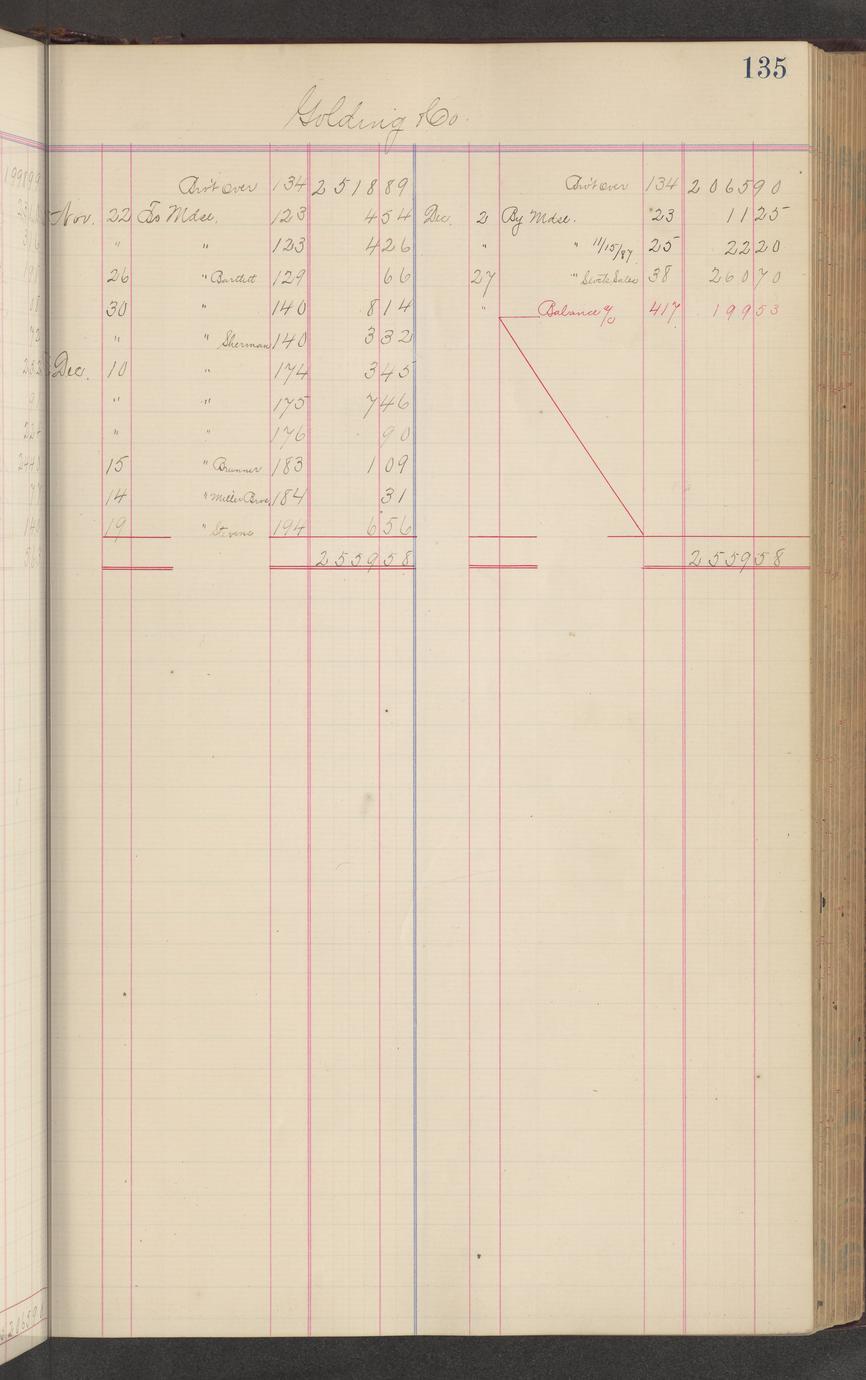 135
Golding & Co.
Bro't Over 134 2518 89 Bro't Over 134 2065 90
Nov. 22 To Mdse. 123 4 54 Dec. 2 By Mdse. 23 11 25
" " 123 4 26 " " 11/15/87 25 22 20
26 " Bartlett 129 66 27 " Sales 38 260 70
30 " 140 8 14 " Balance % 417 199 53
" " Sherman 140 3 32
Dec. 10 " 174 3 45
" " 175 7 46
" " 176 90
15 " Brunner 183 1 09
14 " Miller Bros. 184 31
19 " Stevens 194 6 56
2559 58 2559 58